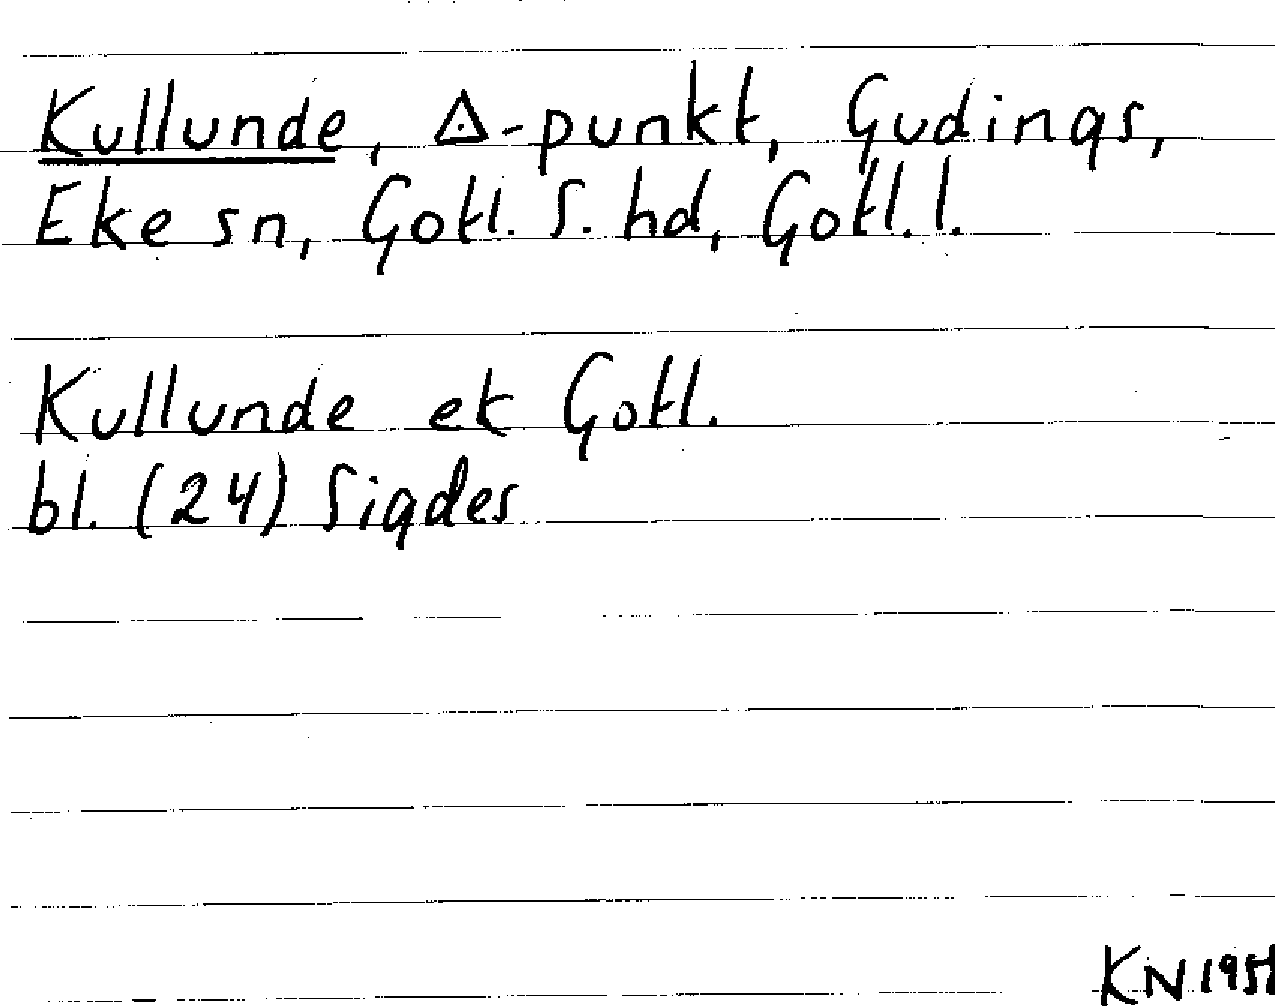 Kullunde, △-punkt, Gudings,
Eke sn, Gotl. S. hd, Gotl. l.
Kullunde ek Gotl.
bl. (24) Sigdes
KN